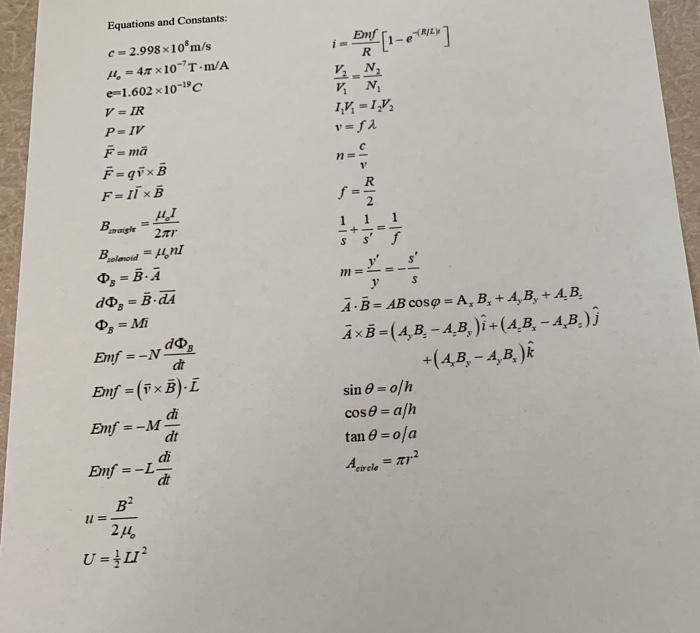 Equations and Constants:
c = 2.998×10⁸ m/s
μₒ = 4π×10⁻⁷ T·m/A
e=1.602×10⁻¹⁹ C
V = IR
P = IV
F⃗ = ma⃗
F⃗ = qv⃗ × B⃗
F = Il⃗ × B⃗
B_straight = μₒI / 2πr
B_solenoid = μₒnI
Φ_B = B⃗ · A⃗
dΦ_B = B⃗ · dA⃗
Φ_B = Mi
Emf = −N dΦ_B/dt
Emf = (v⃗ × B⃗) · L⃗
Emf = −M di/dt
Emf = −L di/dt
u = B² / 2μₒ
U = ½ LI²
i = Emf/R [1 − e^−(R/L)t]
V₂/V₁ = N₂/N₁
I₁V₁ = I₂V₂
v = fλ
n = c/v
f = R/2
1/s + 1/s' = 1/f
m = y'/y = −s'/s
A⃗ · B⃗ = AB cos φ = AₓBₓ + A_yB_y + A_zB_z
A⃗ × B⃗ = (A_yB_z − A_zB_y) î + (A_zBₓ − AₓB_z) ĵ
+ (AₓB_y − A_yBₓ) k̂
sin θ = o/h
cos θ = a/h
tan θ = o/a
A_circle = πr²